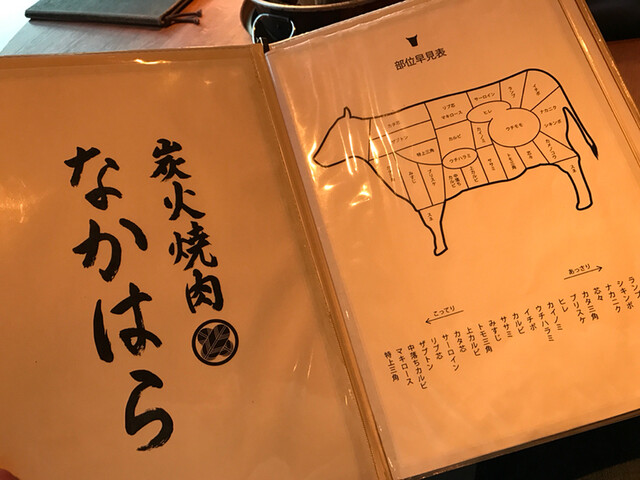 炭火焼肉
なかはら
部位早見表
リブ芯
マキロース
サーロイン
ヒレ
ランプ
イチボ
ナカニク
シキンボ
ウチモモ
カイノミ
カルビ
ザブトン
特上三角
ウチハラミ
みすじ
ブリスケ
中落ちカルビ
上カルビ
ササミ
トモ三角
芯々
スネ
スネ
あっさり
こってり
ランプ
シキンボ
ナカニク
芯々
カタ三角
ブリスケ
ヒレ
カイノミ
ウチハラミ
イチボ
カルビ
ササミ
みすじ
トモ三角
上カルビ
カタ芯
サーロイン
リブ芯
ザブトン
中落ちカルビ
マキロース
特上三角